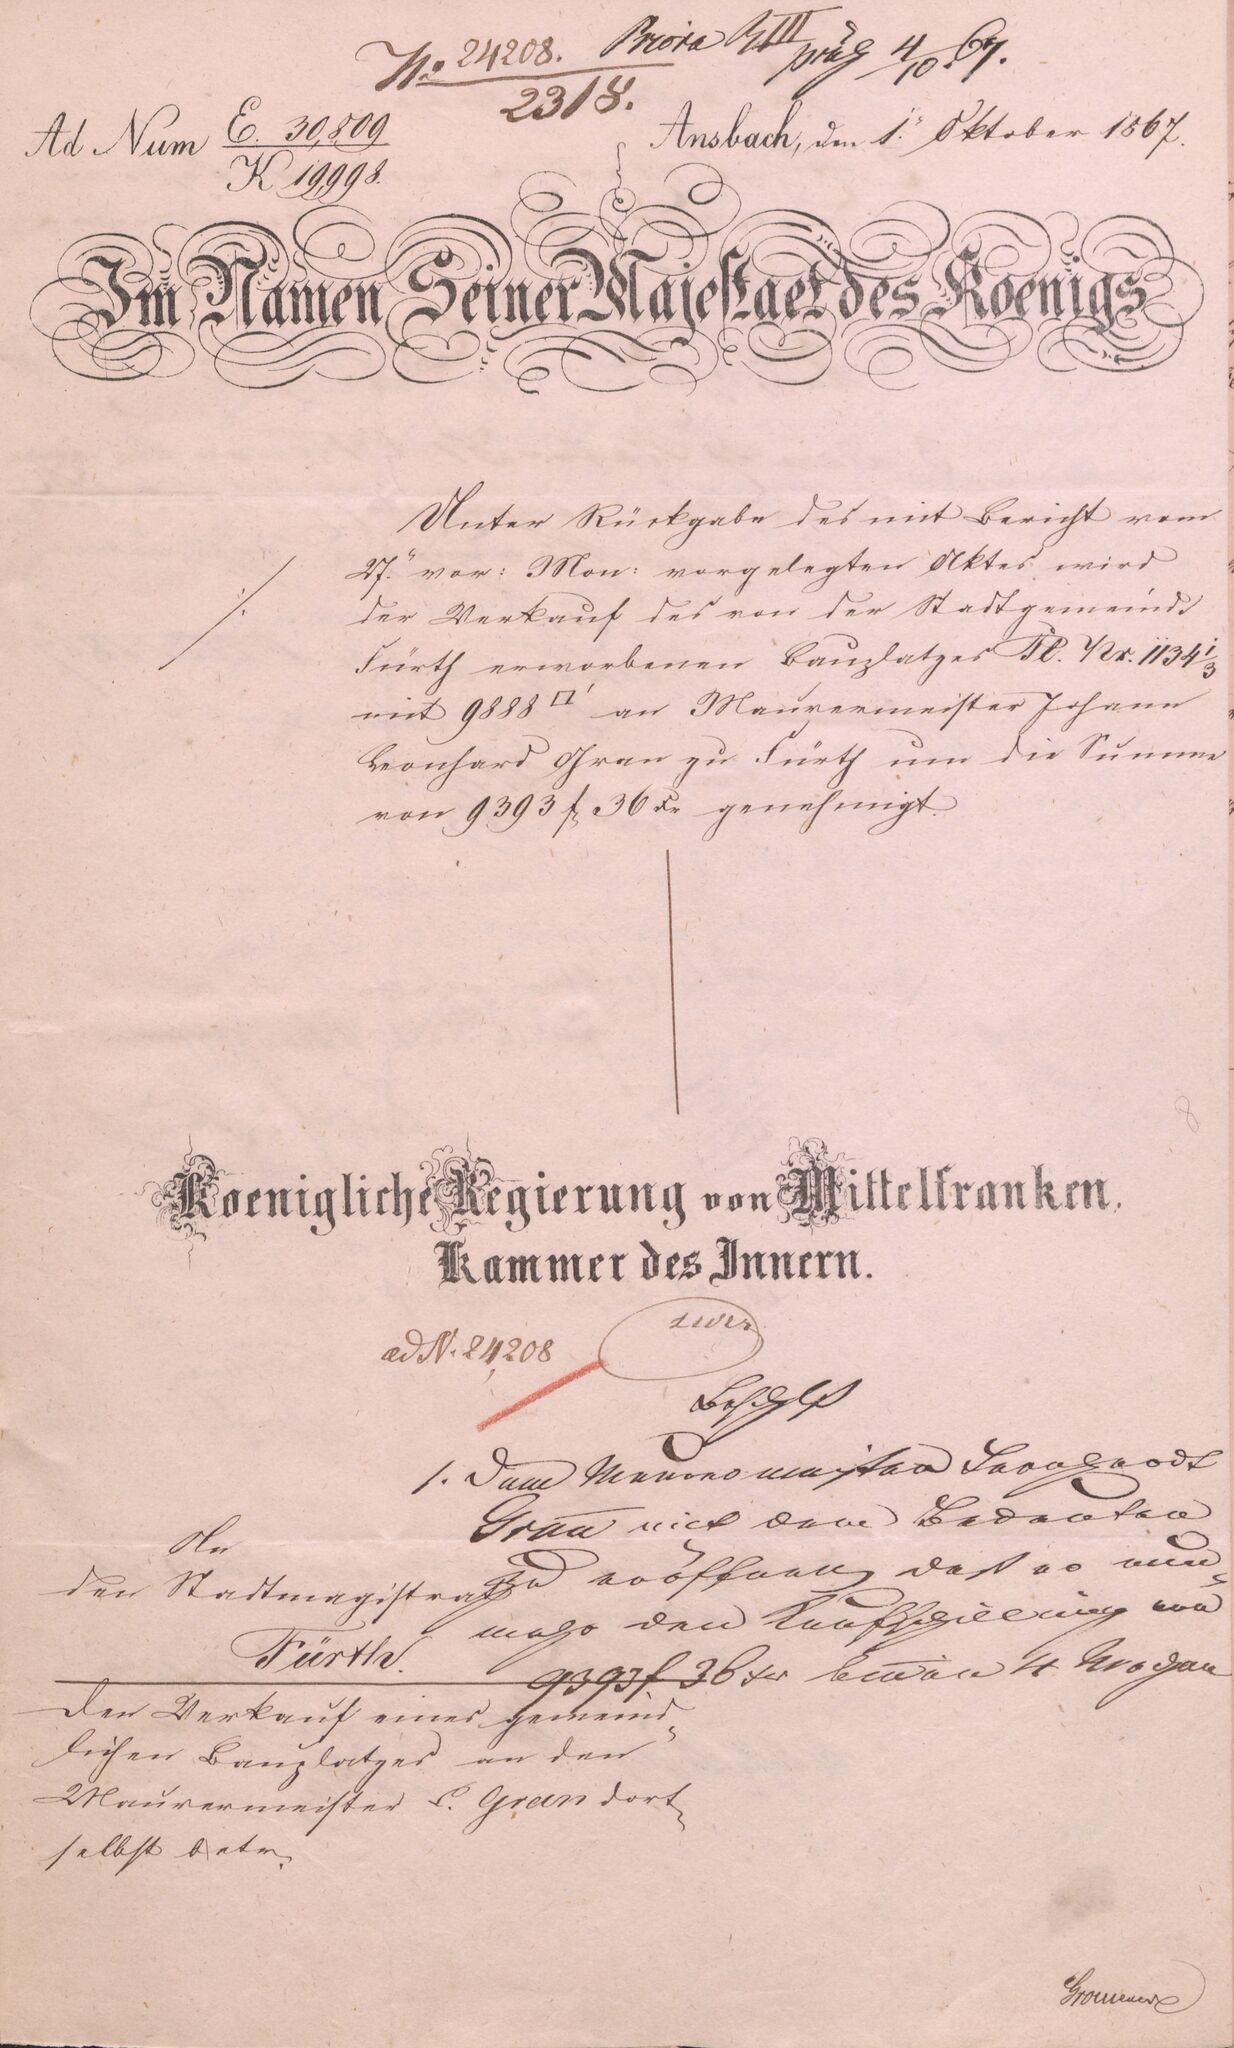 No. 24208. Priora R III präs 4/10. 67.
2318.
Ad Num E. 30,809 Ansbach, den 1.ⁿ Oktober 1867.
K 19,998.
Im Namen Seiner Majestaet des Koenigs
Unter Rückgabe des mit Bericht vom
27.ⁿ vor: Mon: vorgelegten Aktes wird
./.
der Verkauf des von der Stadtgemeinde
Fürth erworbenen Bauplatzes Pl. Nr. 1134 1/3
mit 9888 □' an Maurermeister Johann
Leonhard Gran zu Fürth um die Summe
von 9393 f 36 xr genehmigt.
8
Koenigliche Regierung von Mittelfranken,
Kammer des Innern.
ad N. 24,208
Beschluß
1. Dem Maurermeister Leonhardt
Gran mit dem Bedeuten
zu eröffnen, daß er nun-
mehr den Kaufschilling von
9393 f 36 xr binnen 4 Wochen
An
den Stadtmagistrat
Fürth.
Den Verkauf eines gemeind-
lichen Bauplatzes an den
Maurermeister L. Gran dort-
selbst betr.